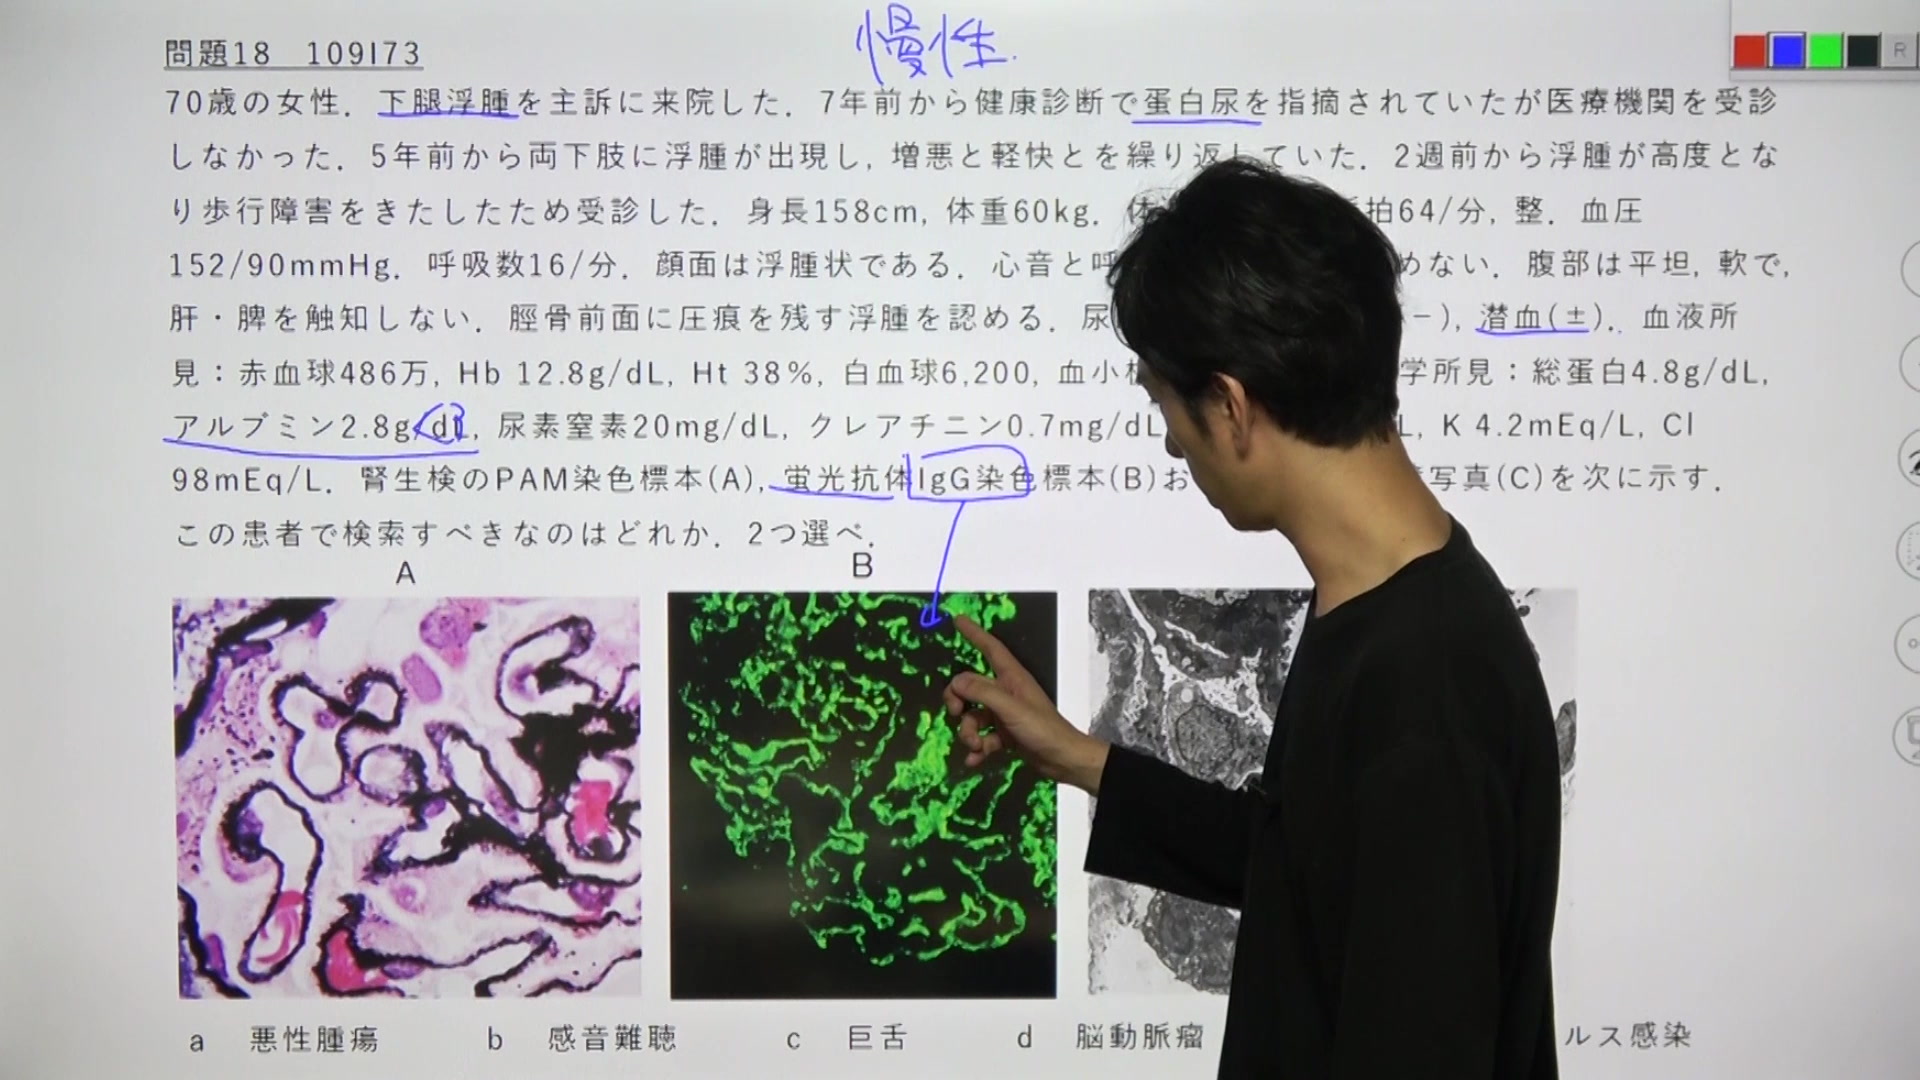 慢性
問題18 109I73
70歳の女性．下腿浮腫を主訴に来院した．7年前から健康診断で蛋白尿を指摘されていたが医療機関を受診
しなかった．5年前から両下肢に浮腫が出現し，増悪と軽快とを繰り返していた．2週前から浮腫が高度とな
り歩行障害をきたしたため受診した．身長158cm，体重60kg．体 拍64/分，整．血圧
152/90mmHg．呼吸数16/分．顔面は浮腫状である．心音と呼 めない．腹部は平坦，軟で，
肝・脾を触知しない．脛骨前面に圧痕を残す浮腫を認める．尿 −)，潜血(±)．血液所
見：赤血球486万，Hb 12.8g/dL，Ht 38%，白血球6,200，血小 学所見：総蛋白4.8g/dL，
アルブミン2.8g/dL，尿素窒素20mg/dL，クレアチニン0.7mg/dL L，K 4.2mEq/L，Cl
98mEq/L．腎生検のPAM染色標本(A)，蛍光抗体IgG染色標本(B)お 写真(C)を次に示す．
この患者で検索すべきなのはどれか．2つ選べ．
A B
a 悪性腫瘍 b 感音難聴 c 巨舌 d 脳動脈瘤 ルス感染
R